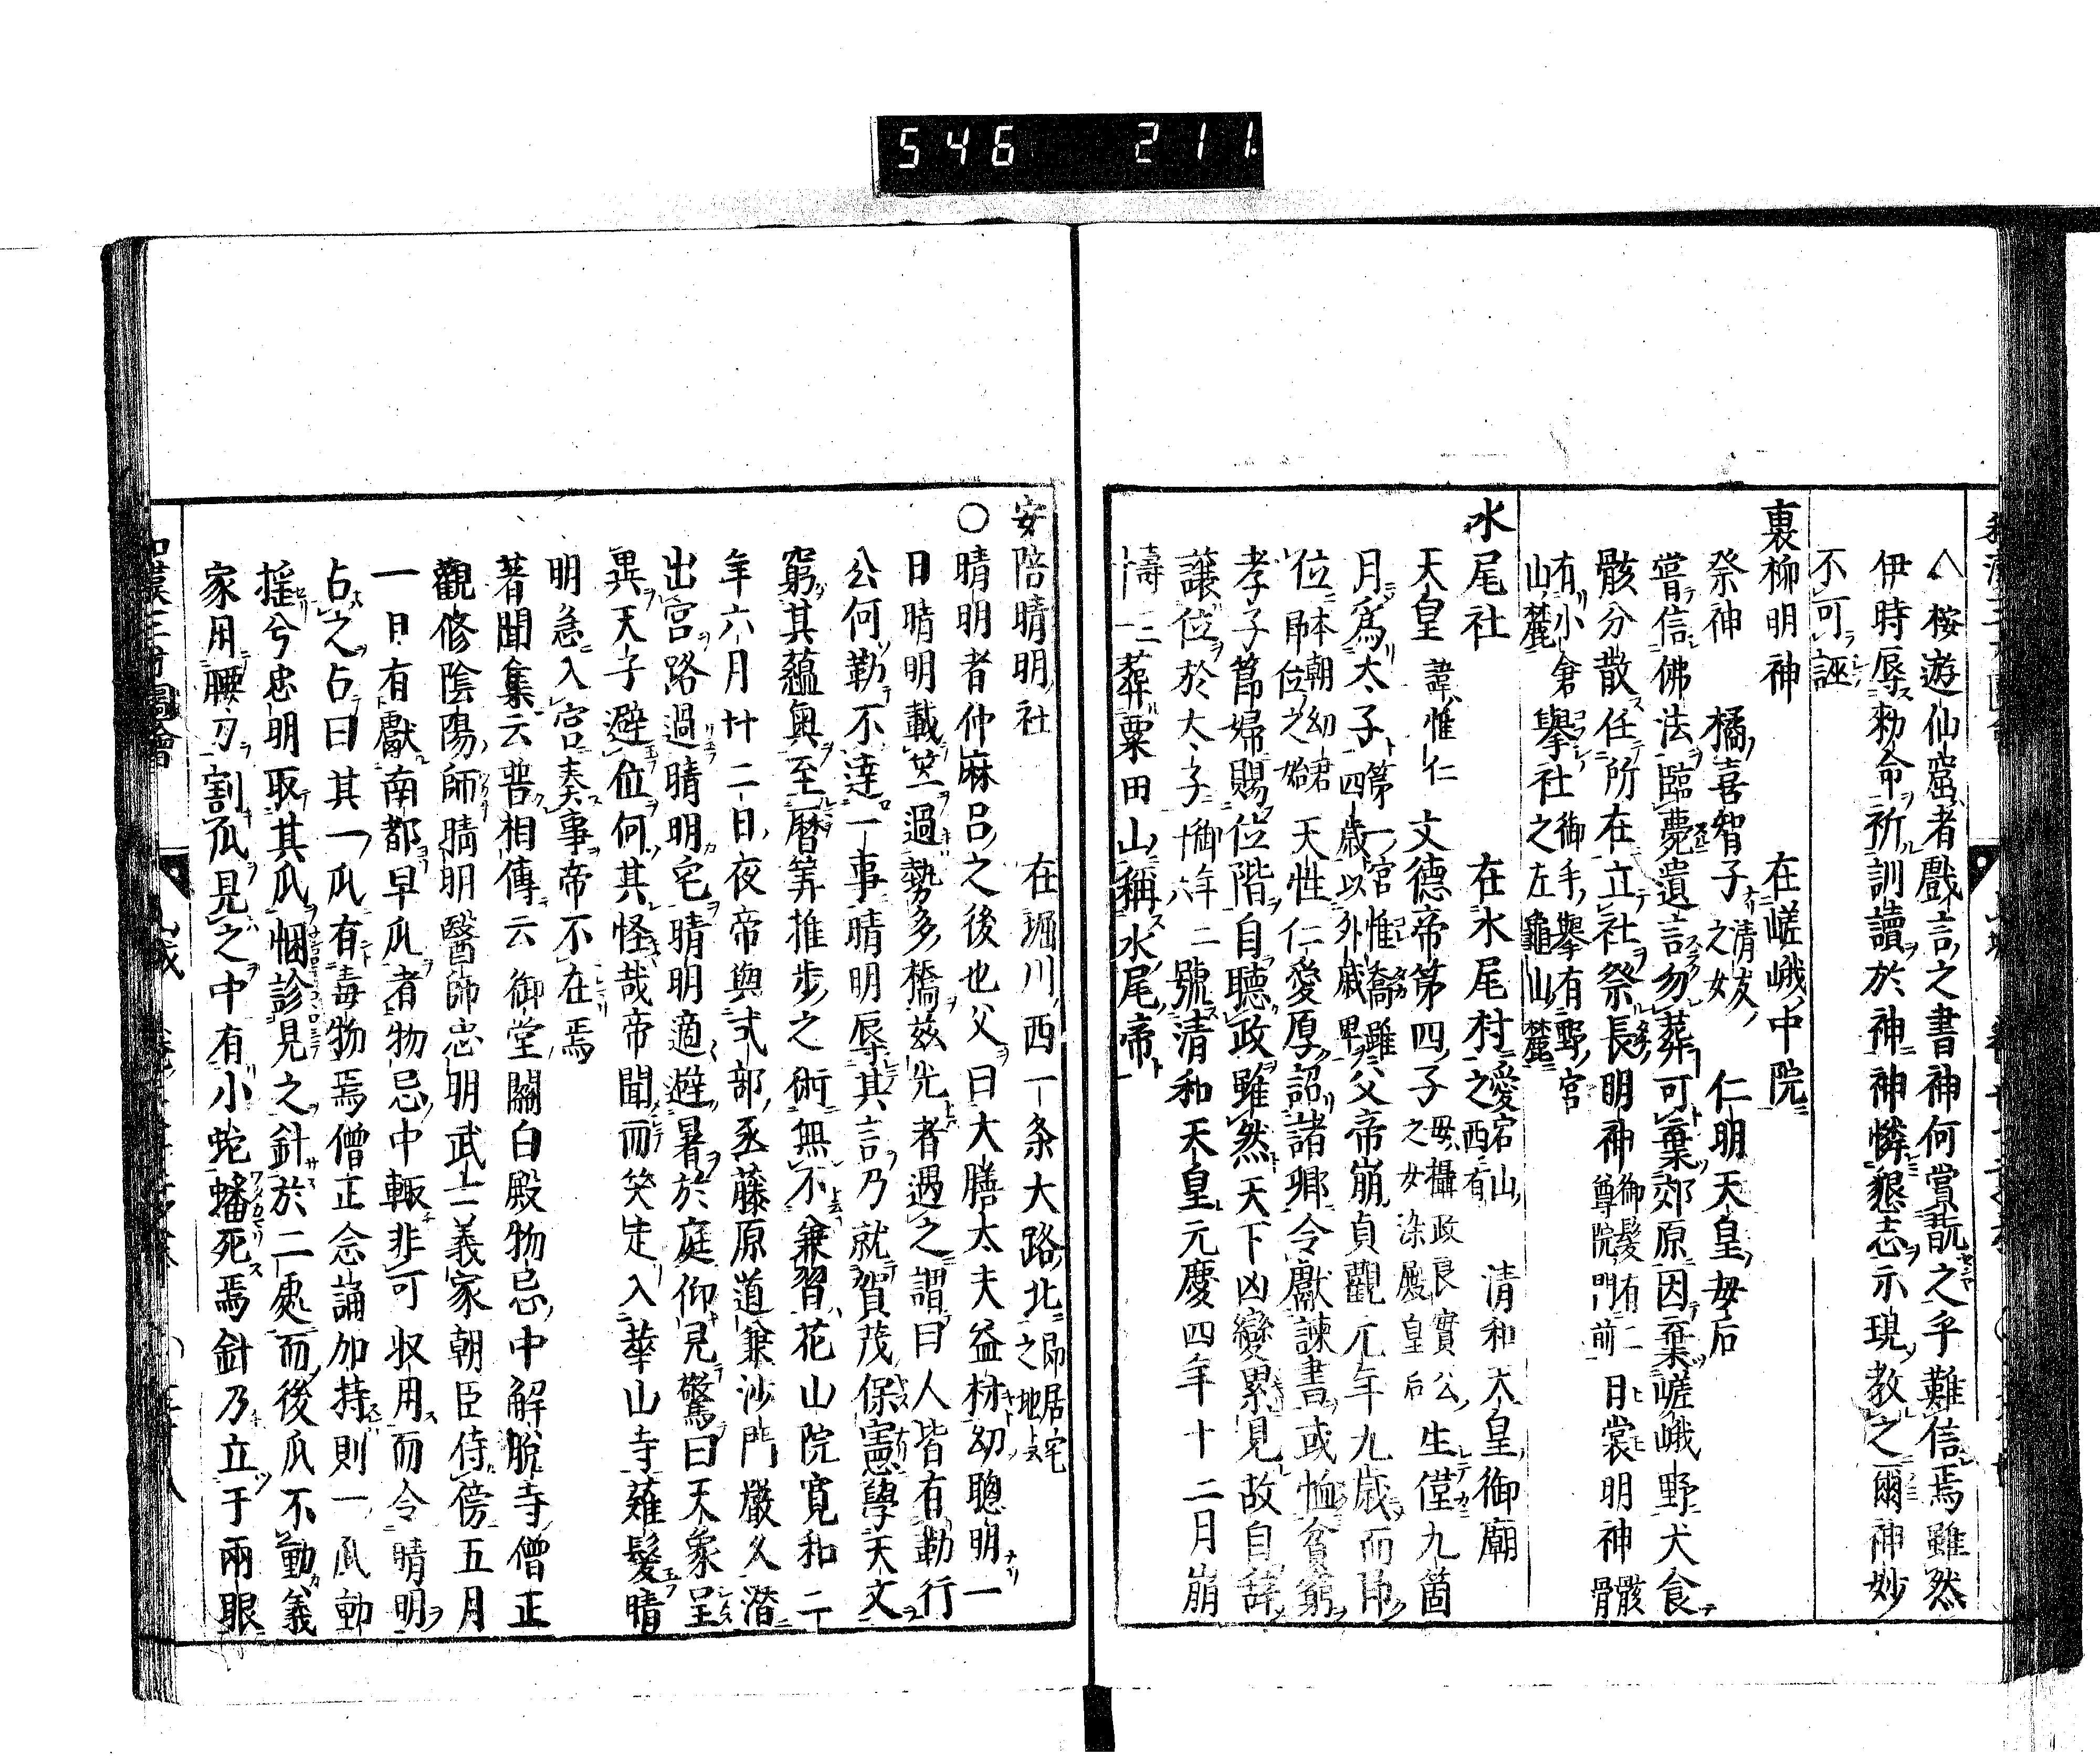 546 211
△桉遊仙窟者戯言之書神何賞翫之乎難信焉雖然
伊時辱勅命祈訓讀於神神憐懇志示現教之爾神妙
不可誣
裏柳明神 在嵯峨中院
祭神 橘喜智子 清友之女 仁明天皇母后
嘗信佛法臨薨遺言勿葬可棄郊原因棄嵯峨野犬食
骸分散任所在立社祭長明神 御髪有二尊院門前 日裳明神 骸骨
有小倉山麓 擧社之左 御手擧有野宮龜山麓
水尾社 在水尾村之西 愛宕山有 清和天皇御廟
天皇 諱惟仁 文德帝第四子 母攝政良實公之女染殿皇后 生僅九箇
月爲太子 第一宮惟喬雖四歳以外戚畀 父帝崩貞觀元年九歳而即
位 本朝幼君即位之始 天性仁愛厚詔諸卿令獻諫書或恤貧窮
孝子節婦賜位階自聽政雖然天下凶變累見故自辞
讓位於太子 御年二十六 號清和天皇元慶四年十二月崩
壽三十一 葬粟田山稱水尾帝
安陪晴明社 在堀川西一条大路北 即居宅之地
○晴明者仲麻呂之後也父曰大膳太夫益材幼聰明一
日晴明載笠過勢多橋茲光者遇之謂曰人皆有勤行
公何勤不達一事晴明辱其言乃就賀茂保憲學天文
窮其蘊奥至曆筭推步之術無不兼習花山院寛和二
年六月廿二日夜帝與式部丞藤原道兼沙門嚴久潜
出宮路過晴明宅晴明適避暑於庭仰見驚曰天象呈
異天子避位何其怪哉帝聞而笑走入華山寺薙髮晴
明急入宮奏事帝不在焉
著聞集云昔相傳云御堂關白殿物忌中解脱寺僧正
觀修陰陽師晴明醫師忠明武士義家朝臣侍傍五月
一日有獻南都早瓜者物忌中輙非可収用而令晴明
占之占曰其一瓜有毒物焉僧正念誦加持則一瓜動
揺兮忠明取其瓜悃診見之針於二處而後瓜不動義
家用腰刀割瓜見之中有小蛇蟠死焉針乃立于兩眼
和漢三才圖會